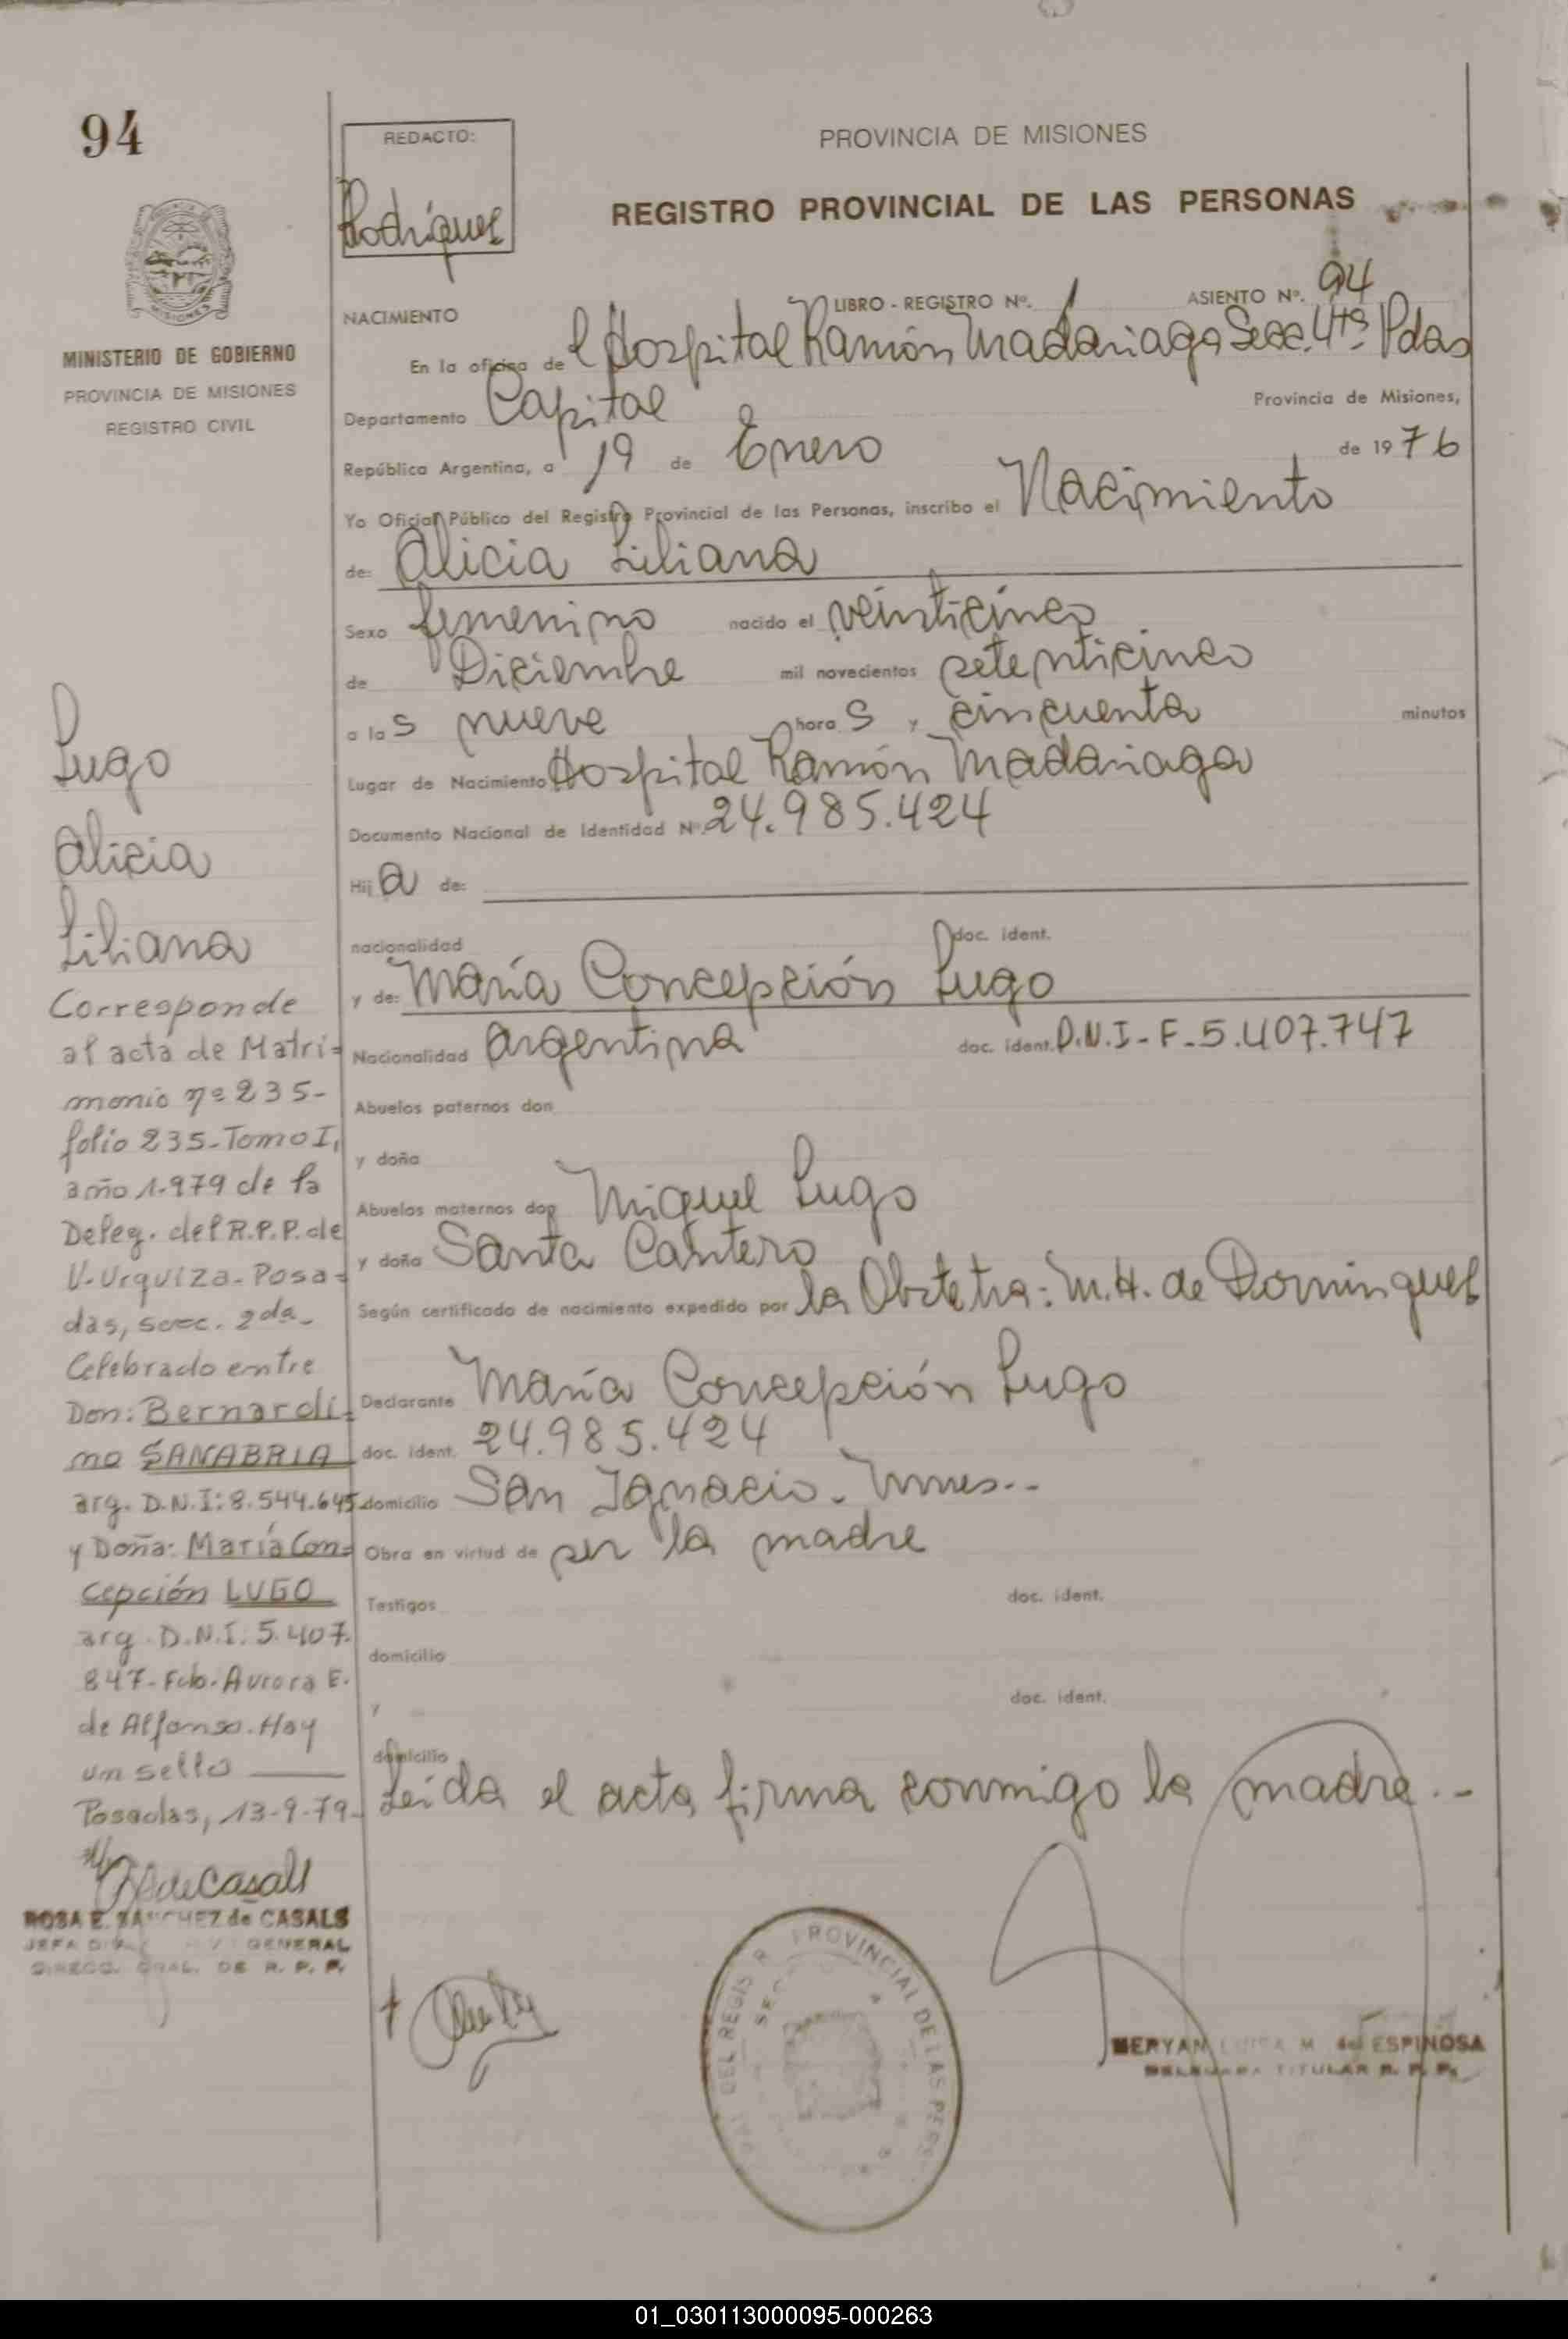 94
REDACTO:
Rodríguez
PROVINCIA DE MISIONES
REGISTRO PROVINCIAL DE LAS PERSONAS
MISIONES
MINISTERIO DE GOBIERNO
PROVINCIA DE MISIONES
REGISTRO CIVIL
NACIMIENTO LIBRO - REGISTRO Nº. 1 ASIENTO Nº. 94
En la oficina de l Hospital Ramón Madariaga Secc. 4ta. Pdas
Departamento Capital Provincia de Misiones,
República Argentina, a 19 de Enero de 1976
Yo Oficial Público del Registro Provincial de las Personas, inscribo el Nacimiento
de: Alicia Liliana
Sexo femenino nacido el veinticinco
de Diciembre mil novecientos setenticinco
a las nueve horas y cincuenta minutos
Lugar de Nacimiento Hospital Ramón Madariaga
Documento Nacional de Identidad Nº. 24.985.424
Hija de:
nacionalidad doc. ident.
y de: María Concepción Lugo
Nacionalidad argentina doc. ident. D.N.I-F-5.407.747
Abuelos paternos don
y doña
Abuelos maternos don Miguel Lugo
y doña Santa Cantero
Según certificado de nacimiento expedido por la Obstetra: M.H. de Dominguez
Declarante María Concepción Lugo
doc. ident. 24.985.424
domicilio San Ignacio - Mnes--
Obra en virtud de ser la madre
Testigos doc. ident.
domicilio
y doc. ident.
domicilio
Leída el acta firma conmigo la madre.-
Lugo
Alicia
Liliana
Corresponde
al acta de Matri=
monio nº 235-
folio 235-Tomo I,
año 1.979 de la
Deleg. del R.P.P. de
V. Urquiza-Posa=
das, secc. 2da-
Celebrado entre
Don: Bernardi=
no SANABRIA
arg. D.N.I: 8.544.645
y Doña: María Con=
cepción LUGO
arg. D.N.I: 5.407.
847-Fdo. Aurora E.
de Alfonso. Hay
un sello
Posadas, 13-9-79-
de Casals
ROSA E. SANCHEZ de CASALS
JEFA GENERAL
DIRECC. GRAL. DE R. P. P.
DEL REGIS PROVINCIAL DE LAS PERS
MERYAN LUISA M. de ESPINOSA
DELEGADA TITULAR R. P. P.
01_030113000095-000263